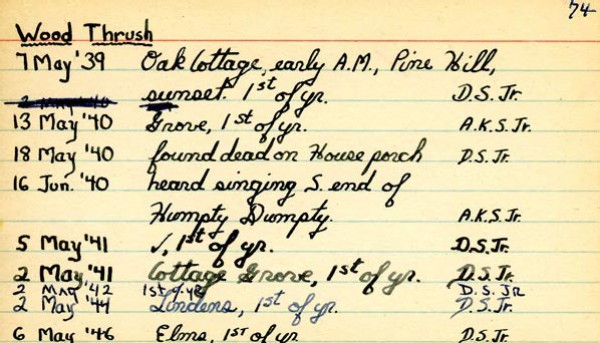 74
Wood Thrush
7 May '39 Oak Cottage, early A.M., Pine Hill,
sunset. 1st of yr. D.S.Jr.
13 May '40 Grove, 1st of yr. A.K.S.Jr.
18 May '40 found dead on House porch D.S.Jr.
16 Jun. '40 heard singing S. end of
Humpty Dumpty. A.K.S.Jr.
5 May '41 ✓, 1st of yr. D.S.Jr.
2 May '41 Cottage Grove, 1st of yr. D.S.Jr.
2 MAY '42 1st of yr D.S.JR
2 May '44 Lindens, 1st of yr. D.S.Jr.
6 May '46 Elms, 1ST of yr D.S.Jr.